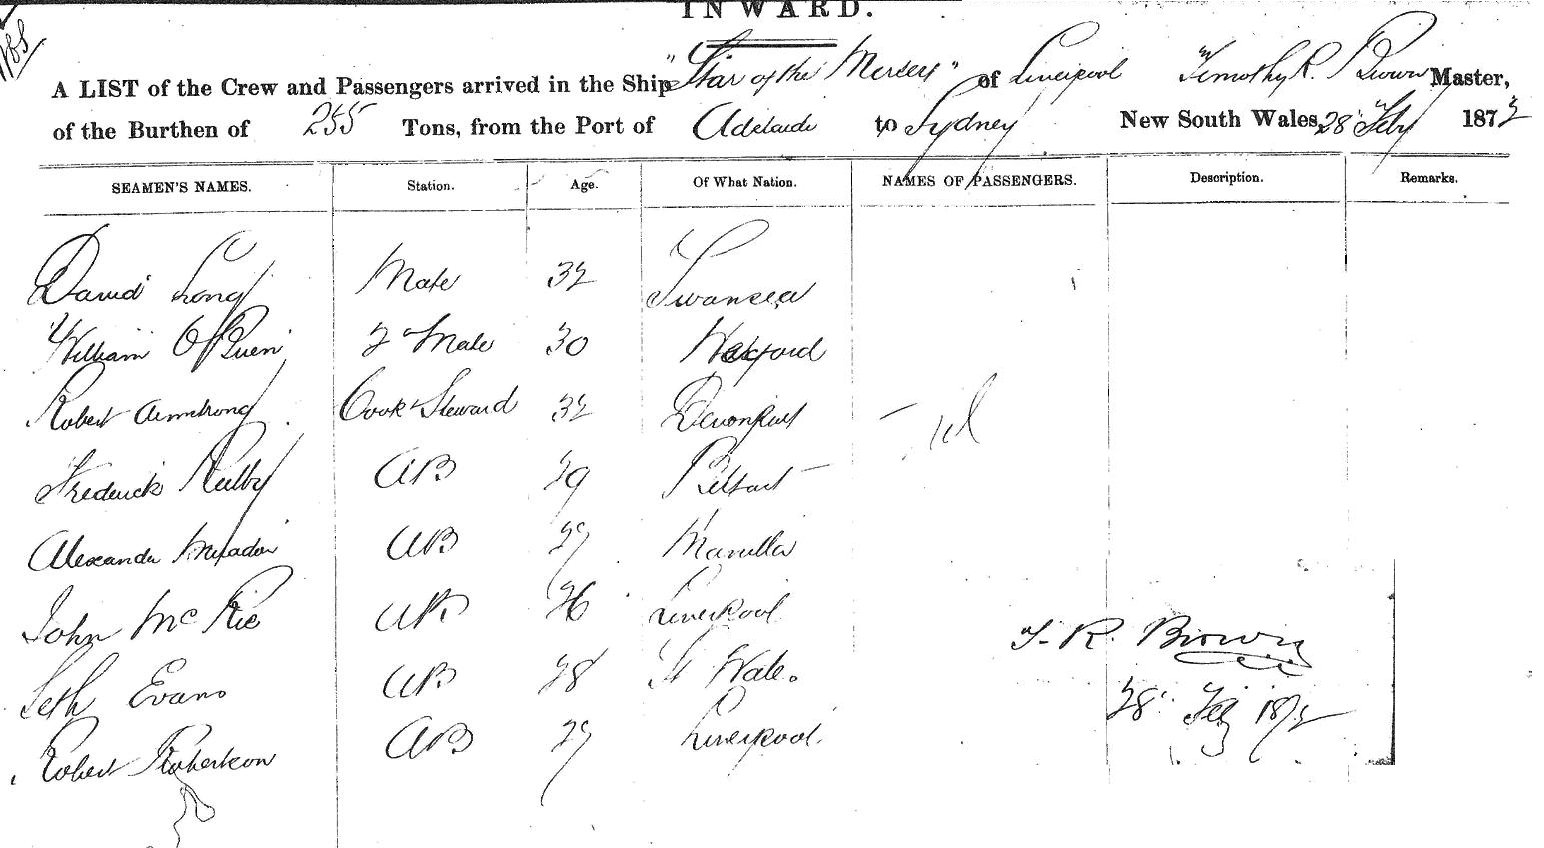 INWARD.
A LIST of the Crew and Passengers arrived in the Ship "Star of the Mersey" of Liverpool Timothy R. Brown Master,
of the Burthen of 255 Tons, from the Port of Adelaide to Sydney New South Wales, 28 Feby 1872
SEAMEN'S NAMES. Station. Age. Of What Nation. NAMES OF PASSENGERS. Description. Remarks.
David Long Mate 32 Swansea
William O'Brien 2 Mate 30 Wexford
Robert Armstrong Cook & Steward 32 Devonport
Frederick AB 29 Belfast
Alexander AB 27 Manilla
John McRie AB 26 Liverpool
T. R. Brown
Seth Evans AB 28 Wales
28 Feby 1872
Robert Robertson AB 27 Liverpool